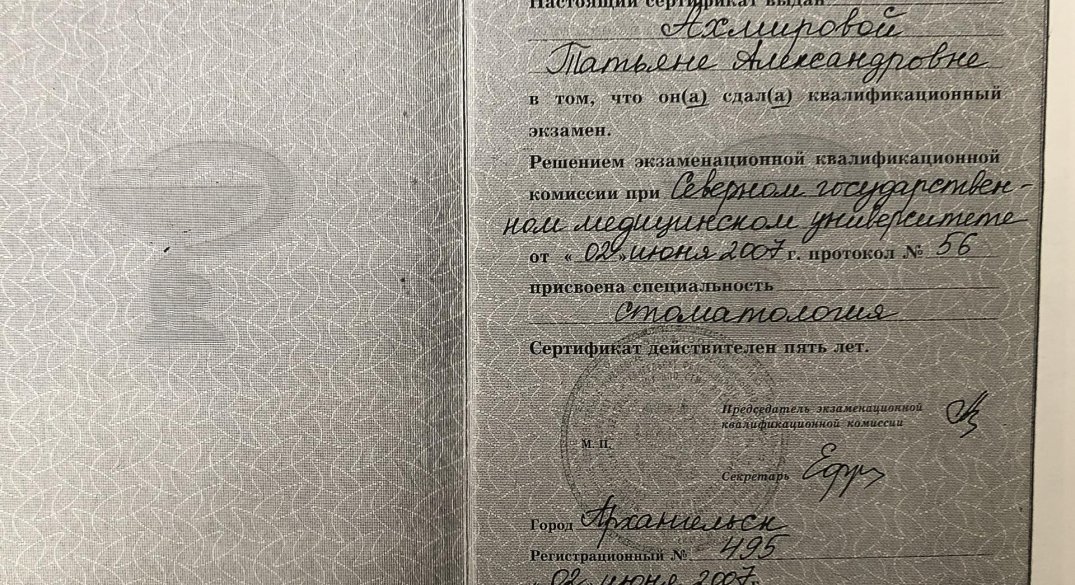 Настоящий сертификат выдан
Ахмировой
Татьяне Александровне
в том, что он(а) сдал(а) квалификационный
экзамен.
Решением экзаменационной квалификационной
комиссии при Северном государствен-
ном медицинском университете
от «02» июня 2007 г. протокол № 56
присвоена специальность
стоматология
Сертификат действителен пять лет.
Председатель экзаменационной
квалификационной комиссии
М. П.
Секретарь
Город Архангельск
Регистрационный № 495
«02» июня 2007 г.